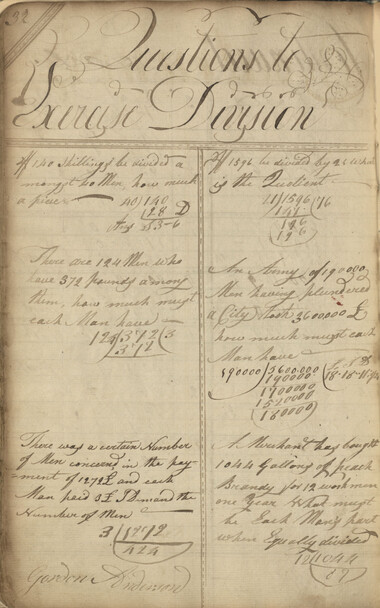 32
Questions to
Exercise Division
If 140 Shillings be divided a
mongst 40 Men, how much
a piece
40)140
(28 D
Ans 3-6
There are 124 Men who
have 372 pounds among
them, how much must
each Man have
124)372(3
372
There was a certain Number
of Men concerned in the pay
ment of 1272£ and each
Man paid 3£ I Demand the
Number of Men
3)1272
424
Gordon Anderson
If 1596 be divided by what
is the Quotient
)1596(
An Army of 190000
Men having plundered
a City took 3600000 £
how much must each
Man have
190000)3600000(18-18-11
190000
1700000
1520000
(180000)
A Merchant has bought
1044 Gallons of peach
Brandy for 12 workmen
one Year What must
be Each Man's part
when Equally divided
12)1044
87